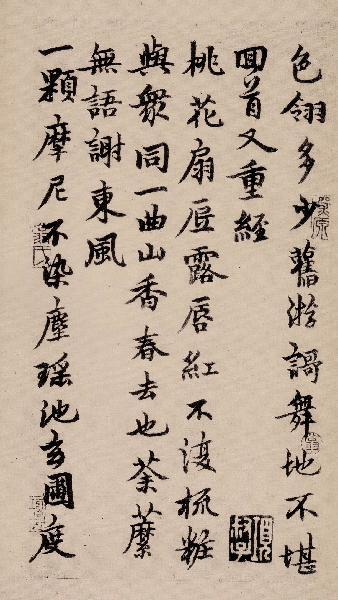 色翎多少舊游謌舞地不堪
回首又重經
桃花扇底露唇紅不復梳粧
與衆同一曲山香春去也荼蘼
無語謝東風
一顆摩尼不染塵瑤池玄圃度